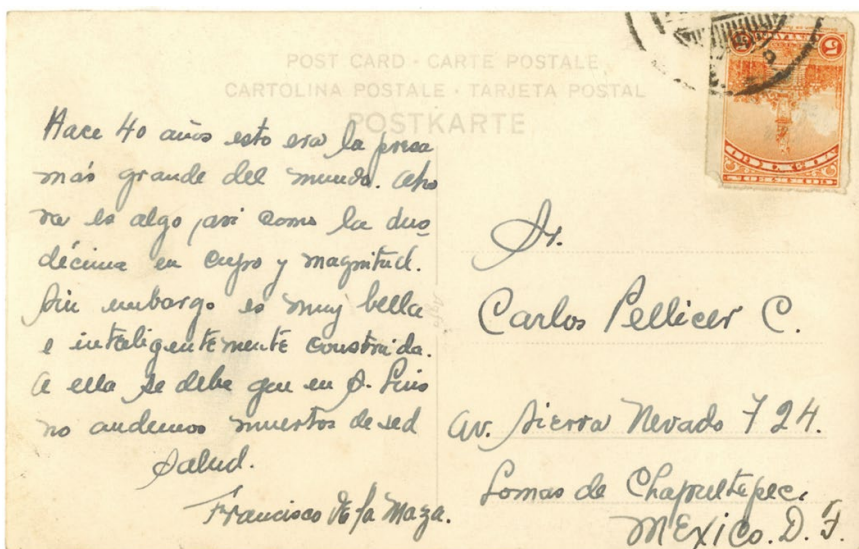 POST CARD · CARTE POSTALE
CARTOLINA POSTALE · TARJETA POSTAL
POSTKARTE
Hace 40 años esto era la presa
más grande del mundo. Aho
ra es algo así como la duo
décima en cupo y magnitud.
Sin embargo es muy bella
e inteligentemente construida.
A ella se debe que en S. Luis
no andemos muertos de sed
Salud.
Francisco de la Maza.
Sr.
Carlos Pellicer C.
Av. Sierra Nevado 724.
Lomas de Chapultepec.
MÉXICO. D. F.
Agfa
5
5